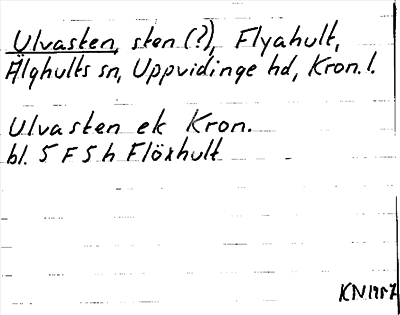 Ulvasten, sten (?), Flyahult,
Älghults sn, Uppvidinge hd, Kron. l.
Ulvasten ek Kron.
bl. 5 F 5 h Flöxhult
KN 1957